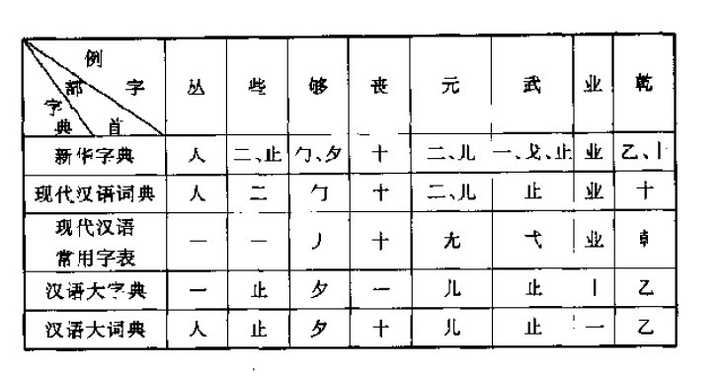 例
部 字 丛 些 够 丧 元 武 业 乾
字
典 首
新华字典 人 二、止 勹、夕 十 二、儿 一、戈、止 业 乙、丨
现代汉语词典 人 二 勹 十 二、儿 止 业 十
现代汉语
常用字表 一 一 丿 十 尢 弋 业 龺
汉语大字典 一 止 夕 一 儿 止 丨 乙
汉语大词典 人 止 夕 十 儿 止 一 乙